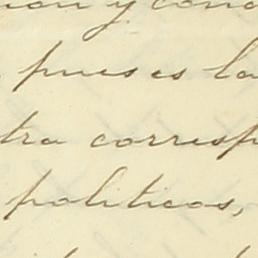 y cono
pues es la
tra corresp
politicos,